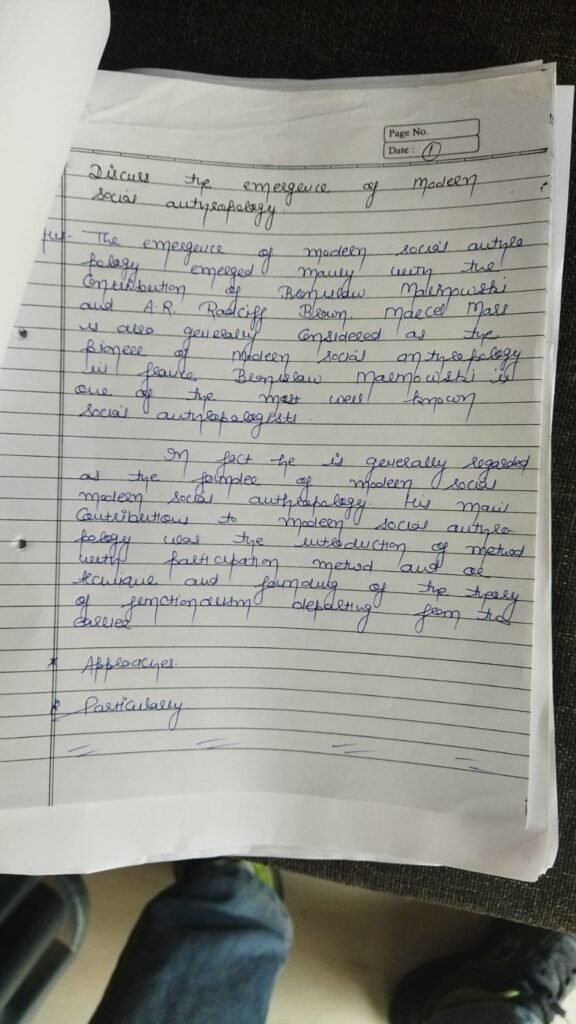 Page No.
Date : 1
Discuss the emergence of modern
social anthropology.
Ans- The emergence of modern social anthro
pology emerged mainly with the
Contribution of Bronislaw Malinowski
and A.R. Radcliff Brown. Marcel Mass
is also generally Considered as the
pioneer of modern social anthropology
in france Bronislaw Malinowski is
one of the most well known
Social anthropologists.
In fact he is generally regarded
as the founder of modern social
modern social anthropology. His main
Contributions to modern social anthro
pology was the introduction of method
with participation method and as
technique and founding of the theory
of functionalism departing from the
earlier
* Approaches.
* Particularly